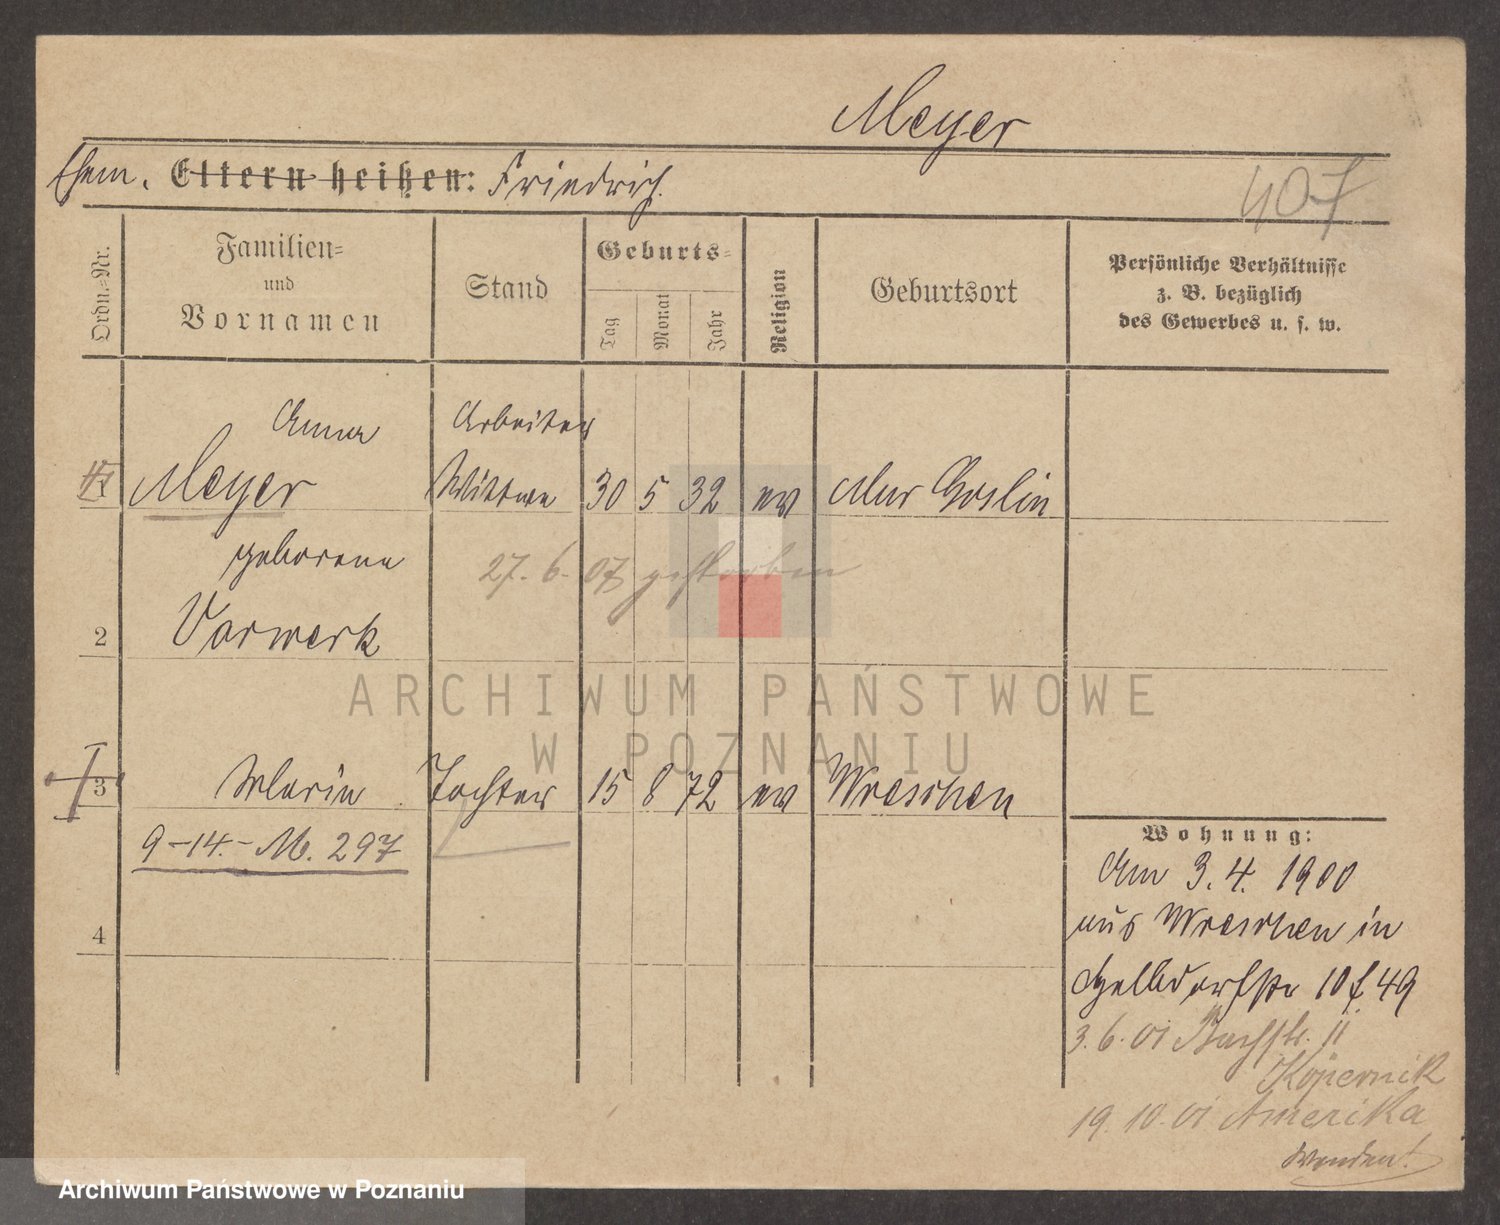 Meyer
Ehem. Eltern heißen: Friedrich.
407
Ordn.=Nr.
Familien=
und
Vornamen
Stand
Geburts=
Tag
Monat
Jahr
Religion
Geburtsort
Persönliche Verhältnisse
z. B. bezüglich
des Gewerbes u. s. w.
Anna Arbeiter
1 Meyer Wittwe 30 5 32 ev Mur Goslin
geborene
27. 6. 07 gestorben
2 Vorwerk
ARCHIWUM PAŃSTWOWE
W POZNANIU
3 Marie Tochter 15 8 72 ev Wreschen
9-14.- M. 297
4
Wohnung:
Am 3. 4. 1900
aus Wreschen in
10 49
3. 6. 01 Bachstr. 11
Kopernik
19. 10. 01 Amerika
wenden!
Archiwum Państwowe w Poznaniu